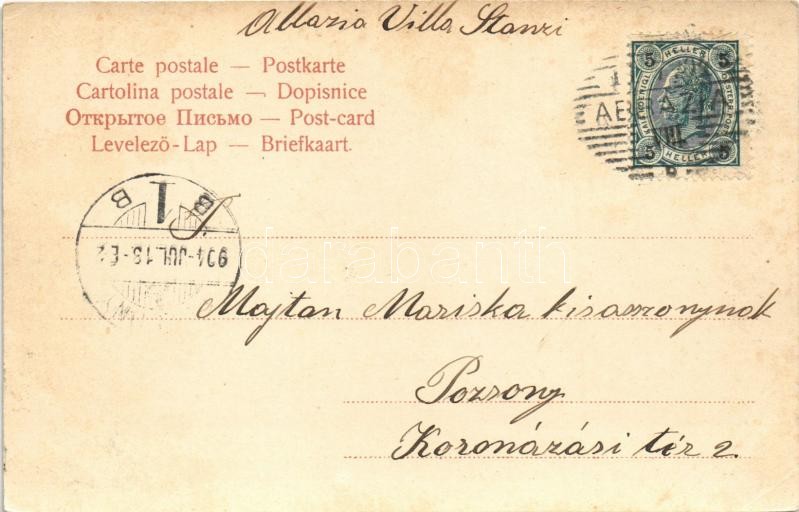 Abbazia Villa Stanzi
Carte postale — Postkarte
Cartolina postale — Dopisnice
Открытое Письмо — Post-card
Levelező-Lap — Briefkaart.
5 HELLER 5
5 HELLER 5
B 1 B
904-JUL.13-
darabanth
Majtan Mariska kisaszonynak
Pozsony
Koronázási tér 2.